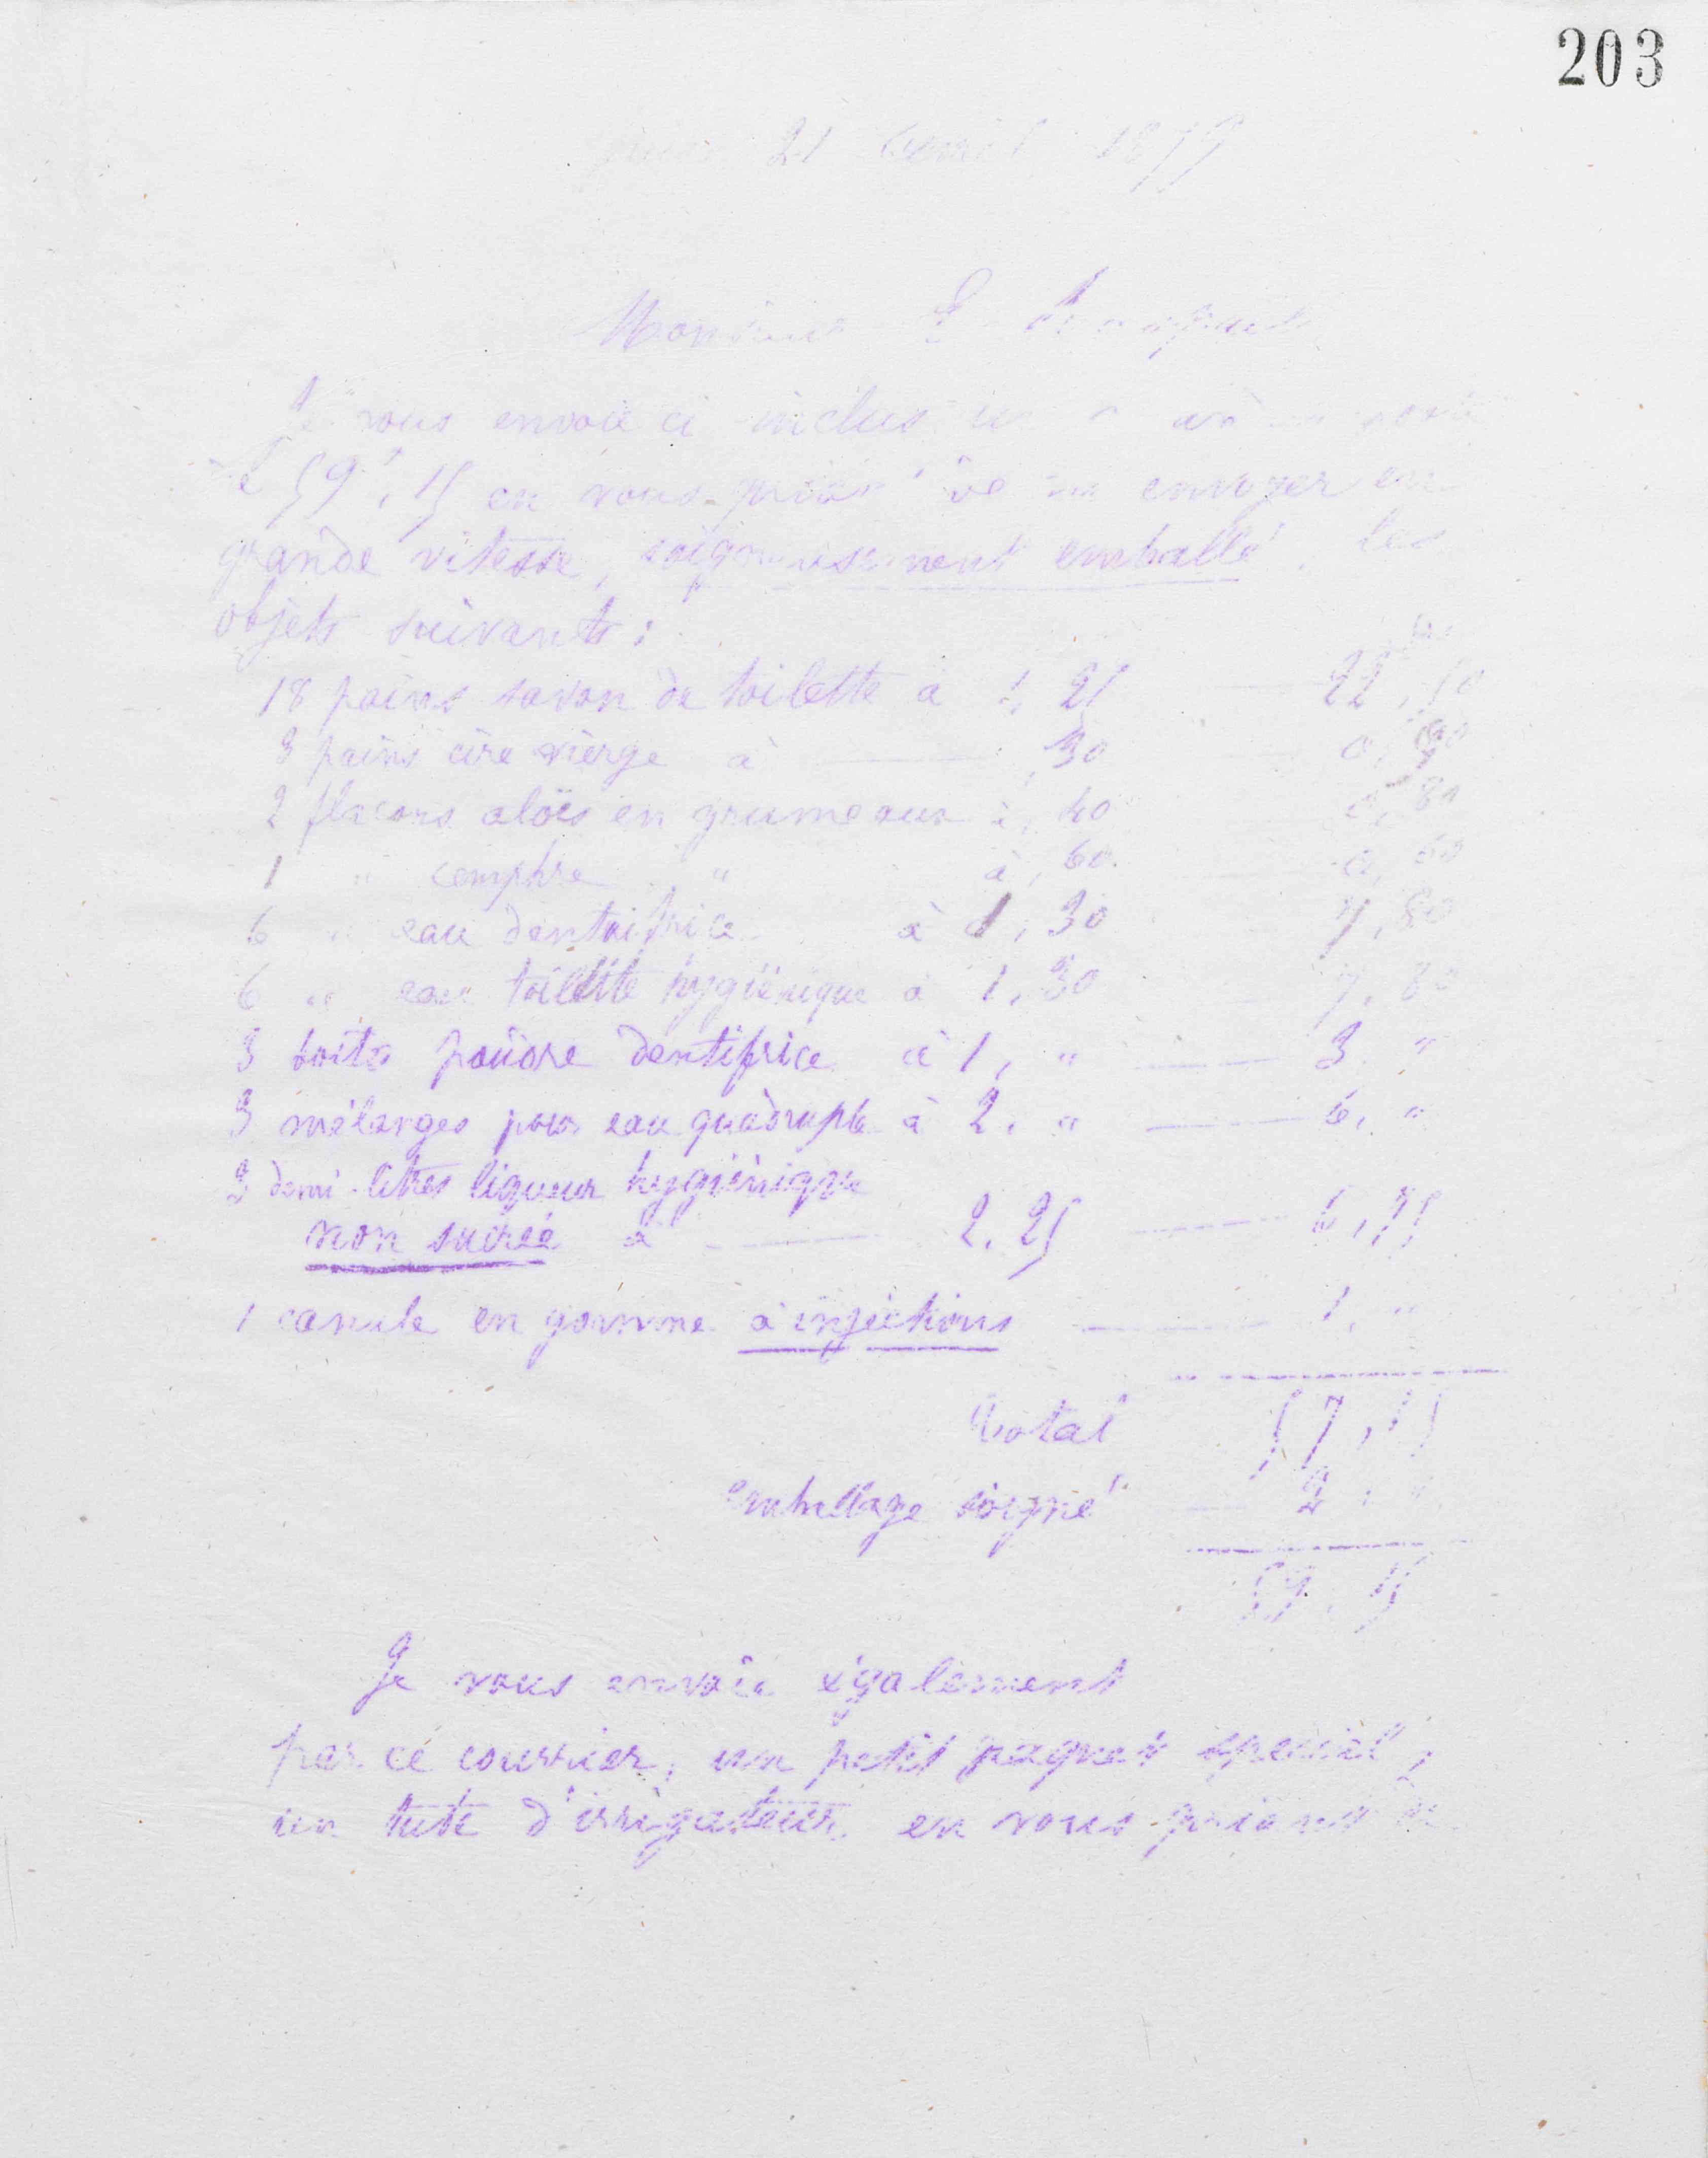 203
21 avril 1879
Monsieur E.
Je vous envoie ci inclus un
de 59f,15 en vous priant de m'envoyer en
grande vitesse, soigneusement emballé, les
objets suivants :
18 pains savon de toilette à 1, 25 22,50
3 pains cire vierge à , 30 0, 90
2 flacons aloës en grumeaux à , 40 0, 80
1 " camphre " à , 60 0, 60
6 " eau dentrifrice à 1, 30 7, 80
6 " eau toilette hygiénique à 1, 30 7, 80
3 boîtes poudre dentifrice à 1, " 3. "
3 mélanges pour eau quadruple à 2. " 6, "
3 demi-litres liqueur hygiénique
non sucrée à 2.25 6,75
1 canule en gomme à injections 1, "
Total 57,15
emballage soigné 2, "
59,15
Je vous envoie également
par ce courrier, un petit paquet spécial,
un tube d'irrigateur en vous priant de